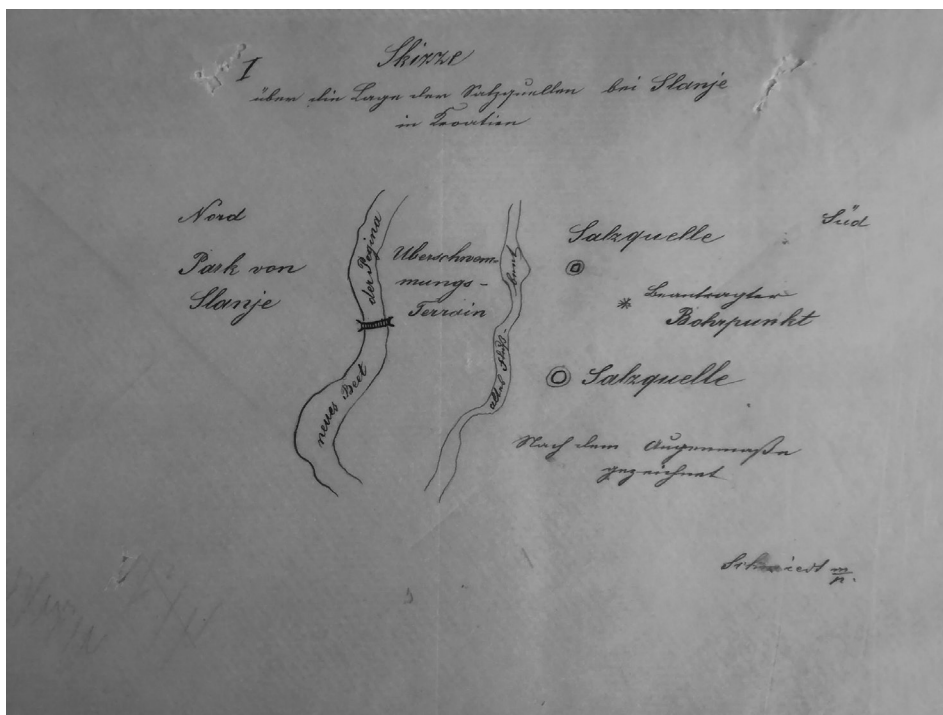 I
Skizze
über die Lage der Salzquellen bei Slanje
in Kroatien
Nord
Süd
Park von
Slanje
neues Beet der Regina
Überschwem-
mungs-
Terrain
altes Fluß-
beet
Salzquelle
Beantragter
Bohrpunkt
Salzquelle
Nach dem Augenmaße
gezeichnet
m/p.